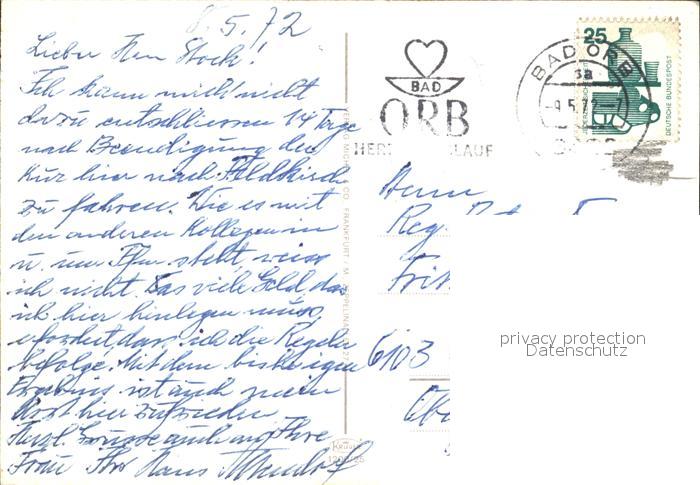 8.5.72
Lieber Herr Stock!
Ich kann mich nicht
dazu entschliessen 14 Tage
nach Beendigung der
Kur hier nach Feldkirch
zu fahren. Wie es mit
den anderen Kollegen in
u. um Ffm. steht, weiss
ich nicht. Das viele Geld das
ich hier hinlegen muss,
erfordert dass ich die Regeln
befolge. Mit dem bisherigen
Ergebnis ist auch mein
Arzt hier zufrieden
Herzl. Grüsse auch an Ihre
Frau Ihr Hans
BAD
ORB
BAD ORB
3a
-9.5.72-7
25
DEUTSCHE BUNDESPOST
JEDERZEIT SICHERHEIT
Herrn
Reg.
6103
Krüger
privacy protection
Datenschutz